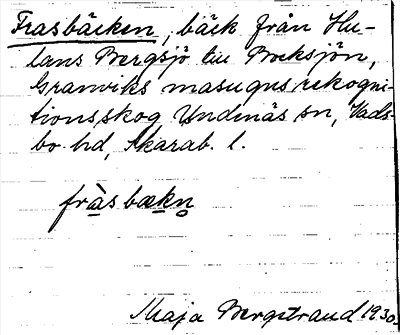 Frasbäcken, bäck från Hu-
lans Bergsjö till Bocksjön,
Granviks masugns rekogni-
tionsskog Undenäs sn, Vads-
bo hd, Skarab. l.
fràsbækn
Maja Bergstrand 1930